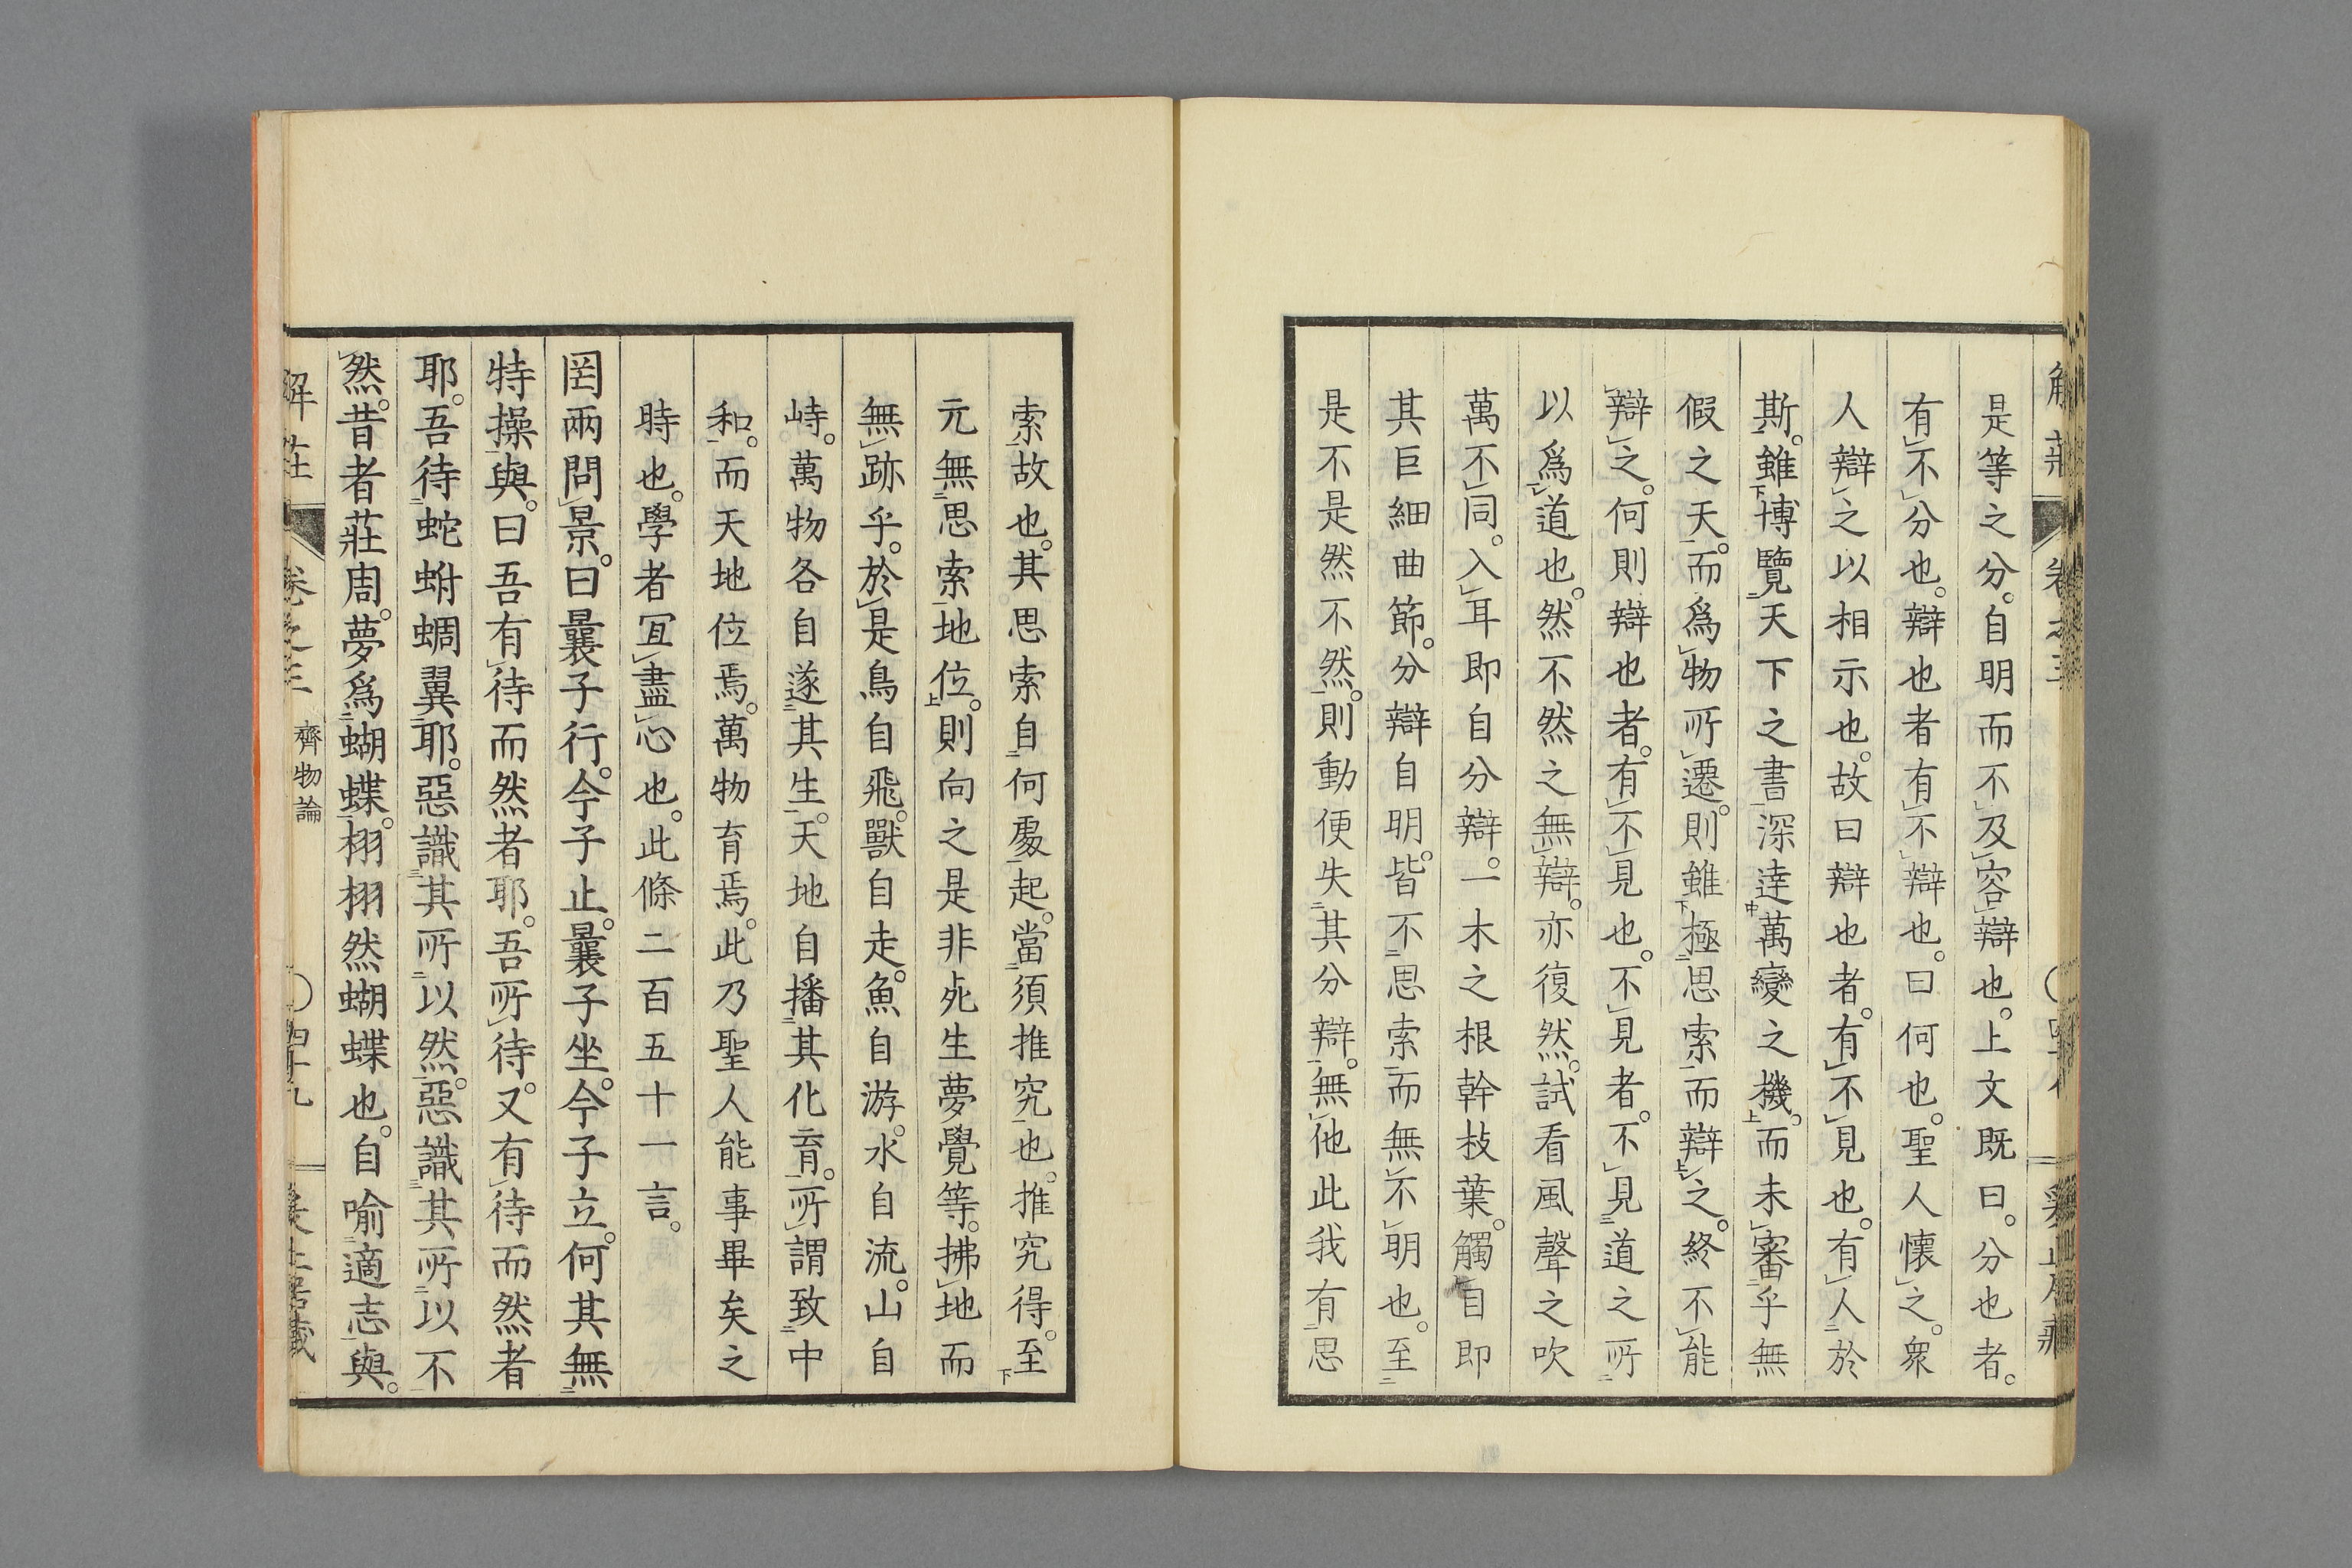 是等之分。自明而不及容辯也。上文既曰。分也者。
有不分也。辯也者有不辯也。曰何也。聖人懷之。衆
人辯之以相示也。故曰辯也者。有不見也。有人於
斯。雖博覽天下之書深達萬變之機。而未審乎無
假之天。而爲物所遷。則雖極思索而辯之。終不能
辯之。何則辯也者。有不見也。不見者。不見道之所
以爲道也。然不然之無辯。亦復然。試看風聲之吹
萬不同。入耳即自分辯。一木之根幹枝葉。觸目即
其巨細曲節。分辯自明。皆不思索而無不明也。至
是不是然不然。則動便失其分辯。無他此我有思
索故也。其思索自何處起。當須推究也。推究得。至
元無思索地位。則向之是非死生夢覺等。拂地而
無跡乎。於是鳥自飛。獸自走。魚自游。水自流。山自
峙。萬物各自遂其生。天地自播其化育。所謂致中
和。而天地位焉。萬物育焉。此乃聖人能事畢矣之
時也。學者宜盡心也。此條二百五十一言。
罔兩問景。曰曩子行。今子止。曩子坐。今子立。何其無
特操與。曰吾有待而然者耶。吾所待。又有待而然者
耶。吾待蛇蚹蜩翼耶。惡識其所以然。惡識其所以不
然。昔者莊周。夢爲蝴蝶。栩栩然蝴蝶也。自喻適志與。
解莊 卷之三 齊物論 四十九